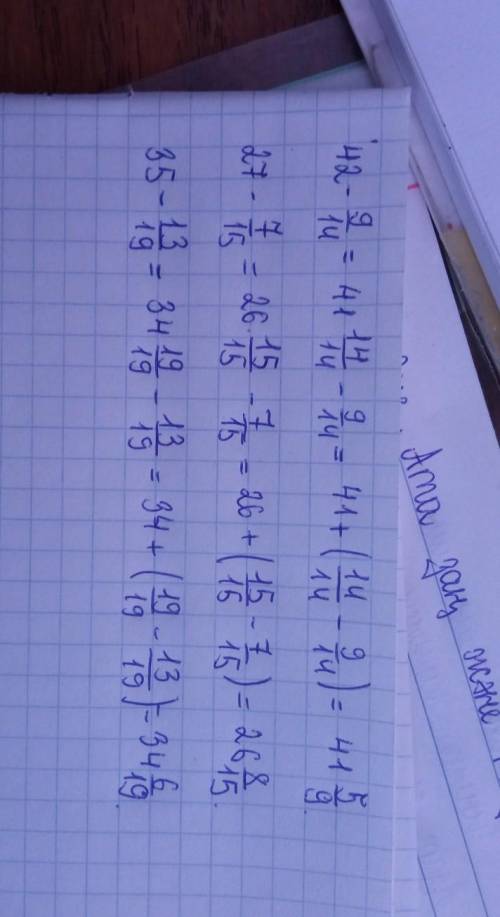 42 - 9/14 = 41 14/14 - 9/14 = 41 + (14/14 - 9/14) = 41 5/9.
27 - 7/15 = 26 15/15 - 7/15 = 26 + (15/16 - 7/15) = 26 8/15.
35 - 13/19 = 34 19/19 - 13/19 = 34 + (19/19 - 13/19) = 34 6/19.
Ата заң және